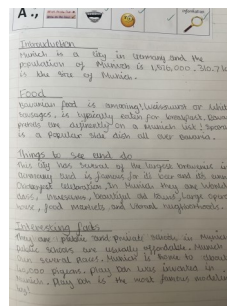 A.,
Information
Introduction
Munich is a city in Germany and the
population of Munich is 1,
is the size of Munich.
Food
Bavarian food is amazing! Weisswurst or white
sausages, is typically eaten for breakfast.
are definetly on a Munich list!
is a popular side dish all over Bavaria.
Things to see and do
This city has several of the largest breweries in
Germany and is famous for its beer and its annual
Oktoberfest celebration. In Munich they are world
class, museums, beautiful old large opera
house, food markets and vibrant neighborhoods.
Interesting facts
They are public and private schools in Munich.
Public schools are usually affordable. Munich
has several . Munich is home to about
40,000 pigeons. Play Dan was invented in
Munich. Play Dan is the most famous
toy!